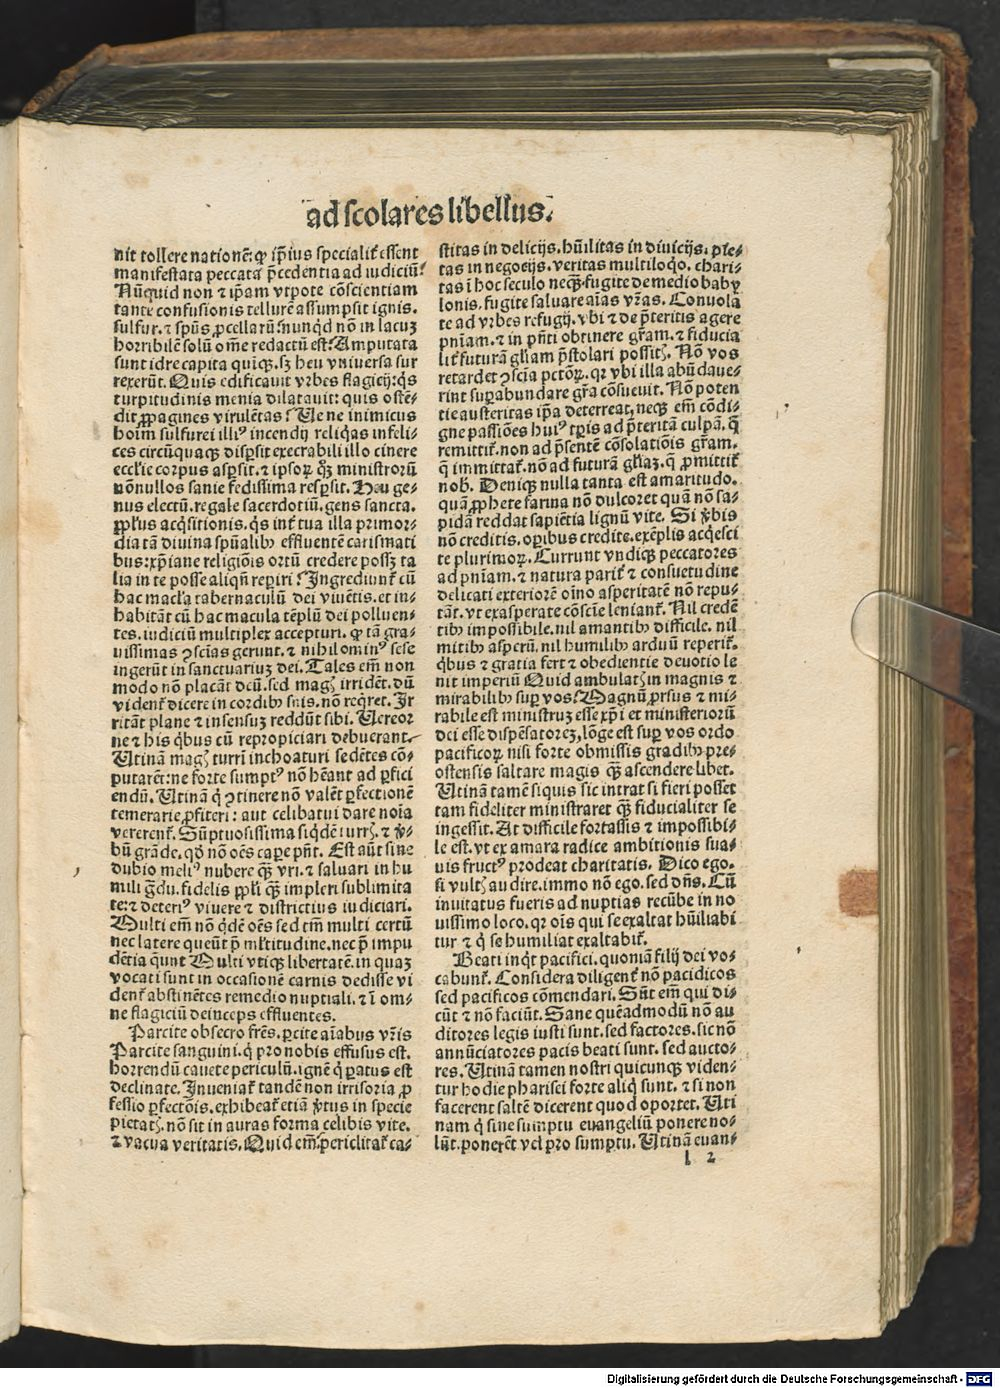 ad scolares libellus.
nit tollere nationē: qꝫ ip̄ius specialit᷑ essent
manifestata peccata p̄cedentia ad iudiciū?
Nūquid non ⁊ ip̄am vtpote cōscientiam
tante confusionis tellurē assumpsit ignis.
sulfur. ⁊ spūs ꝓcellarū? nunqͥd nō in lacuꝫ
horribilē solū om̄e redactū est? Amputata
sunt idre capita quiqꝫ. sꝫ heu vniuersa sur
rexerūt. Quis edificauit vrbes flagicij: qͥs
turpitudinis menia dilatauit: quis ostē-
dit ꝓpagines virulētas? Ue ne inimicus
hoīm sulfurei illiꝰ incendij reliqͥas infeli-
ces circūquaqꝫ disꝑsit execrabili illo cinere
ecclīe corpus asꝑsit. ⁊ ipsoꝝ qꝫ ministrorū
nōnullos sanie fedissima resꝑsit. Heu ge-
nus electū. regale sacerdotiū. gens sancta.
ppl̄us acqͥsitionis. qͥs int᷑ tua illa primor-
dia tā diuina spūalibꝫ effluentē carismati
bus: xp̄iane religiōis ortū credere possꝫ ta
lia in te posse aliqn̄ reꝑiri? Ingrediunt᷑ cū
hac macl̄a tabernaculū dei viuētis. et in-
habitāt cū hac macula tēplū dei polluen-
tes. iudiciū multiplex accepturi. qꝫ tā gra-
uissimas ↄscīas gerunt. ⁊ nihilominꝰ sese
ingerūt in sanctuariuꝫ dei. Tales em̄ non
modo nō placāt deū. sed magꝭ irridēt. dū
vident᷑ dicere in cordibꝫ suis. nō reqͥret. Ir
ritāt plane ⁊ insensuꝫ reddūt sibi. Uereor
ne ⁊ his qͥbus cū repropiciari debuerant.
Utinā magꝭ turrī inchoaturi sedētes cō-
putarēt: ne forte sumptꝰ nō hēant ad ꝑfici
endū. Utinā qͥ ↄtinere nō valēt ꝑfectionē
temerarie ꝓfiteri: aut celibatui dare noīa
vererent᷑. Sūptuosissima siqͥdē turrꝭ. ⁊ v̄-
bū grāde. qd̄ nō oēs capere pn̄t. Est aūt sine
dubio meliꝰ nubere qꝫ vri. ⁊ saluari in hu
mili gͣdu. fidelis ppl̄i qꝫ impleri sublimita
te: ⁊ deteriꝰ viuere ⁊ districtius iudiciari.
Multi em̄ nō qͥdē oēs sed tn̄ multi certū
nec latere queūt p̄ ml̄titudine. nec p̄ impu
dētia qͥunt Multi vtiqꝫ libertatē. in quaꝫ
vocati sunt in occasionē carnis dedisse vi
dent᷑ abstinētes remedio nuptiali. ⁊ ī om-
ne flagiciū deinceps effluentes.
Parcite obsecro frēs. ꝑcite aīabus vr̄is
Parcite sanguini. qͥ pro nobis effusus est.
horrendū cauete periculū. ignē qͥ ꝑatus est
declinate. Inueniat᷑ tandē non irrisoria ꝓ
fessio ꝑfectōis. exhibeat᷑ etiā v̄tus in specie
pietatꝭ. nō sit in auras forma celibis vite.
⁊ vacua veritatis. Quid em̄. periclitat᷑ ca-
stitas in delicijs. hūilitas in diuicijs. pie-
tas in negocijs. veritas multiloqͥo. chari-
tas ī hoc seculo neqꝫ. fugite de medio baby
lonis. fugite saluare aīas vr̄as. Conuola
te ad vrbes refugij. vbi ⁊ de p̄teritis agere
pn̄iam. ⁊ in pn̄ti obtinere gr̄am. ⁊ fiducia
lit᷑ futurā gl̄iam p̄stolari possitꝭ. Nō vos
retardet ↄscīa pctōꝝ. qꝛ vbi illa abūdaue-
rint suꝑabundare gr̄a cōsueuit. Nō poten
tie austeritas ip̄a deterreat, neqꝫ em̄ cōdi-
gne passiōes huiꝰ tꝑis ad p̄teritā culpā. q̄
remittit᷑. non ad p̄sentē cōsolatiōis gr̄am.
q̄ immittat᷑. nō ad futurā gl̄iaꝫ. q̄ ꝓmittit᷑
nob̄. Deniqꝫ nulla tanta est amaritudo.
quā ꝓphete farina nō dulcoret quā nō sa-
pidā reddat sapiētia lignū vite. Si v̄bis
nō creditis. oꝑibus credite. exēplis acqͥesci
te plurimoꝝ. Currunt vndiqꝫ peccatores
ad pn̄iam. ⁊ natura parit᷑ ⁊ consuetudine
delicati exteriorē oīno asperitatē nō repu-
tāt. vt exasperate cōscīe leniant᷑. Nil credē
tibꝫ impossibile. nil amantibꝫ difficile. nil
mitibꝫ asperū. nil humilibꝫ arduū reperit᷑.
qͥbus ⁊ gratia fert ⁊ obedientie deuotio le
nit imperiū Quid ambulatꝭ in magnis ⁊
mirabilibꝫ suꝑ vos? Magnū ꝓrsus ⁊ mi-
rabile est ministruꝫ esse xp̄i et ministeriorū
dei esse dispēsatoreꝫ, lōge est suꝑ vos ordo
pacificoꝝ nisi forte obmissis gradibꝫ pre-
ostensis saltare magis qꝫ ascendere libet.
Utinā tamē si quis sic intrat si fieri posset
tam fideliter ministraret qꝫ fiducialiter se
ingessit. At difficile fortassis ⁊ impossibi-
le est. vt ex amara radice ambitionis sua-
uis fructꝰ prodeat charitatis. Dico ego.
si vultꝭ audire. immo nō ego. sed dn̄s. Cū
inuitatus fueris ad nuptias recūbe in no
uissimo loco. qꝛ oīs qui se exaltat hūiliabi
tur ⁊ qͥ se humiliat exaltabit᷑.
Beati inqͥt pacifici. quoniā filij dei vo-
cabunt᷑. Considera diligent᷑ nō pacidicos
sed pacificos cōmendari. Sūt em̄ qui di-
cūt ⁊ nō faciūt. Sane quēadmodū nō au
ditores legis iusti sunt. sed factores. sic nō
annūciatores pacis beati sunt. sed aucto-
res. Utinā tamen nostri quicunqꝫ viden-
tur hodie pharisei forte aliqͥ sunt. ⁊ si non
facerent saltē dicerent quod oportet. Uti
nam qͥ sine sumptu euangeliū ponere no-
lūt. ponerēt vel pro sumptu. Utinā euan-
l 2
Digitalisierung gefördert durch die Deutsche Forschungsgemeinschaft - DFG